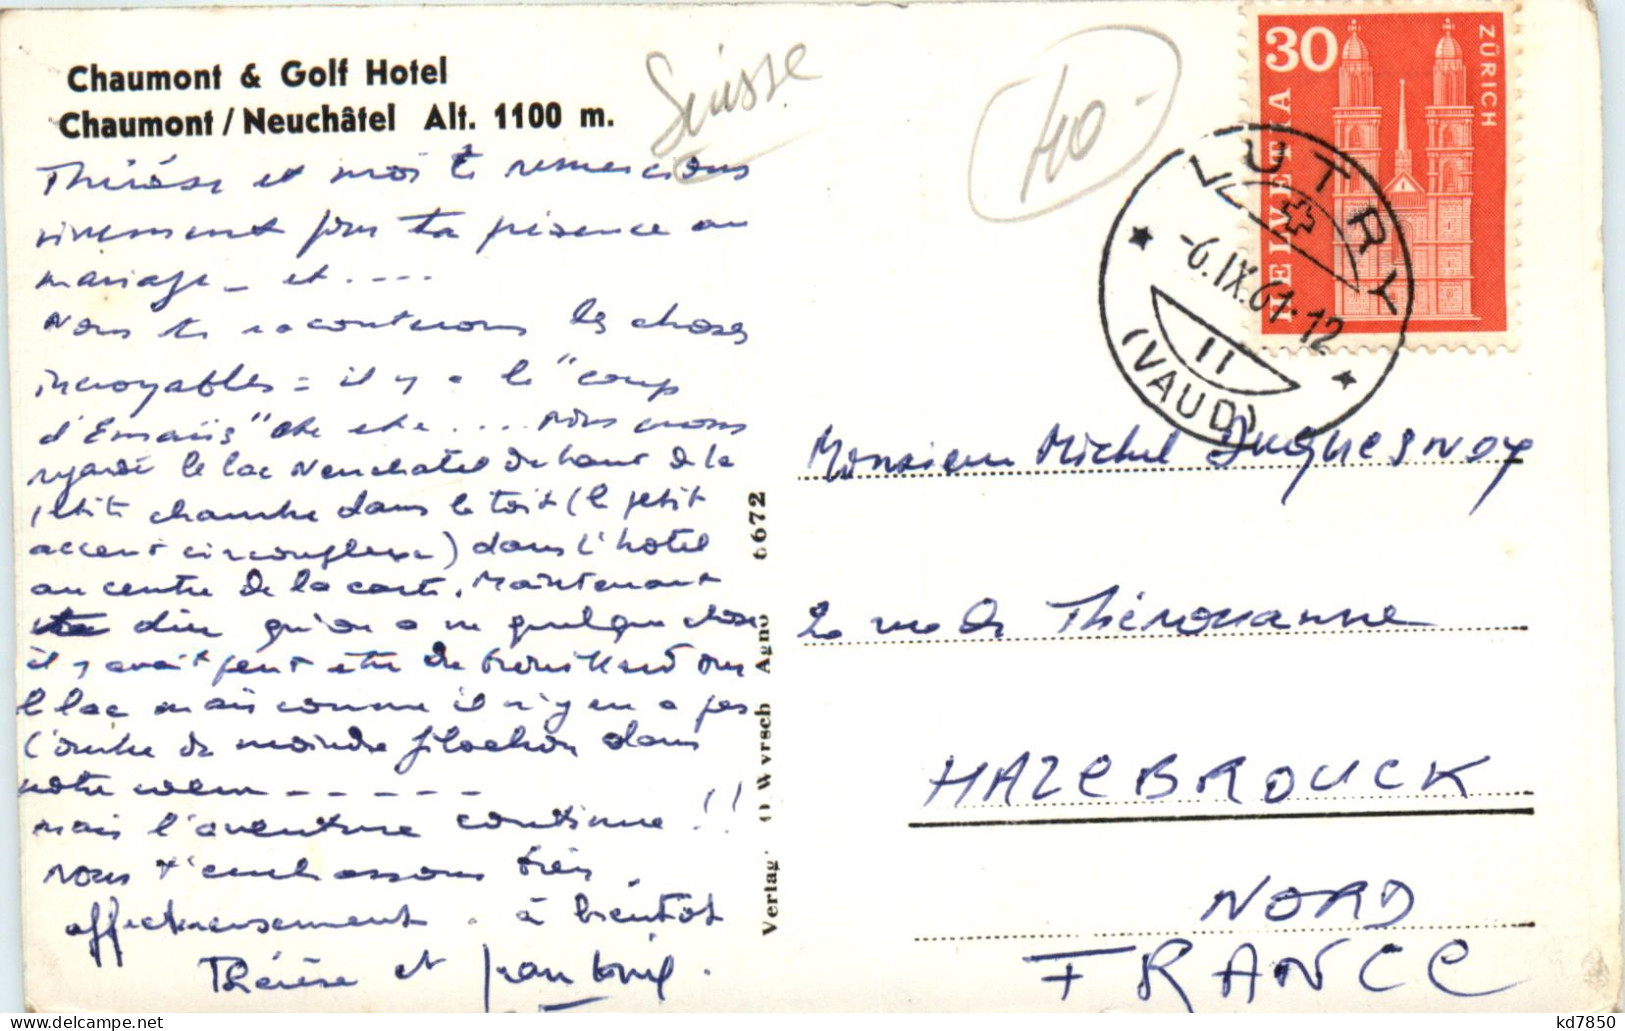 Chaumont & Golf Hotel
Chaumont / Neuchâtel Alt. 1100 m.
Suisse
40 -
30
ZÜRICH
HELVETIA
LUTRY
-6.IX.61-12
11
(VAUD)
Thérèse et moi te remercions
vivement pour ta présence au
mariage - et ....
Nous te raconterons les choses
incroyables = il y a le "coup
d'Emaüs" etc etc .... Nous avons
regardé le lac Neuchatel du haut de la
petite chambre dans le toit (le petit
accent circonflexe) dans l'hotel
au centre de la carte. Maintenant
dire qu'on a vu quelque chose
il y avait peut etre du brouillard sur
le lac mais comme il n'y en a pas
l'ombre de moindre filochon dans
notre coeur - - - - -
mais l'aventure continue !!
nous t'embrassons bien
affectueusement. à bientôt
Thérèse et Jean
Verlag O. Wyrsch Agno 6672
Monsieur Michel Duquesnoy
2 rue de Thérouanne
HAZEBROUCK
NORD
FRANCE
kd7850